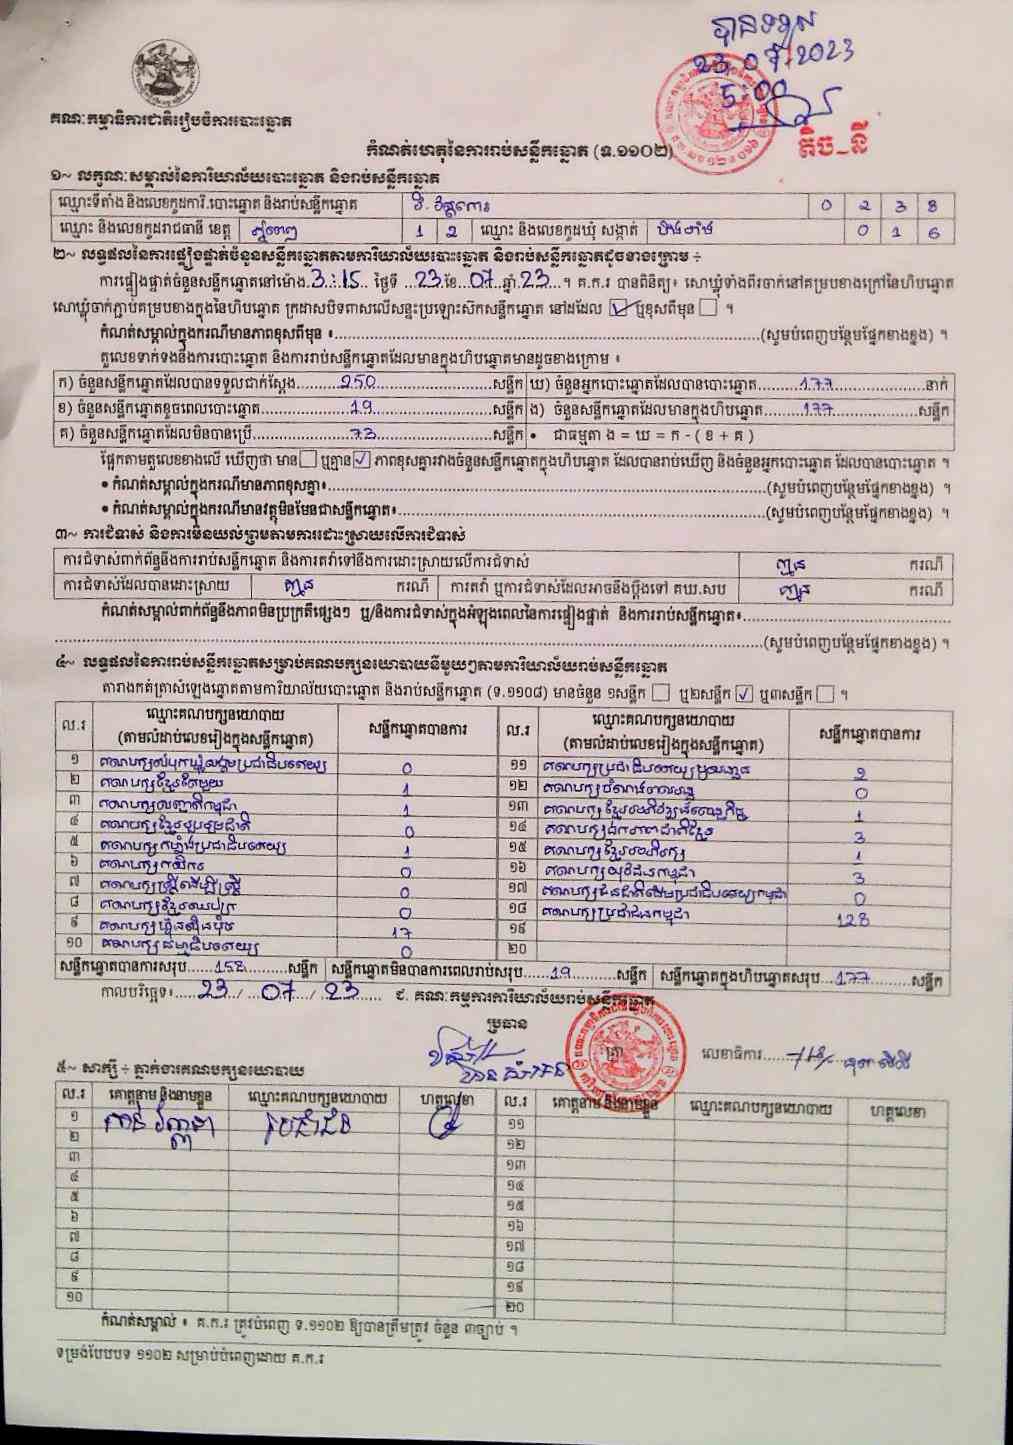 បានទទួល
23.07.2023
5:00
គណៈកម្មាធិការជាតិរៀបចំការបោះឆ្នោត
តិច_នី
កំណត់ហេតុនៃការរាប់សន្លឹកឆ្នោត (ទ.១១០២)
១~ លក្ខណៈសម្គាល់នៃការិយាល័យបោះឆ្នោត និងរាប់សន្លឹកឆ្នោត
ឈ្មោះទីតាំង និងលេខកូដការិ.បោះឆ្នោត និងរាប់សន្លឹកឆ្នោត 0 2 3 8
ឈ្មោះ និងលេខកូដរាជធានី ខេត្ត ភ្នំពេញ 1 2 ឈ្មោះ និងលេខកូដឃុំ សង្កាត់ 0 1 6
២~ លទ្ធផលនៃការផ្ទៀងផ្ទាត់ចំនួនសន្លឹកឆ្នោតតាមការិយាល័យបោះឆ្នោត និងរាប់សន្លឹកឆ្នោតដូចខាងក្រោម ÷
ការផ្ទៀងផ្ទាត់ចំនួនសន្លឹកឆ្នោតនៅម៉ោង.3:15... ថ្ងៃទី ..23..ខែ..07..ឆ្នាំ.23...។ គ.ក.រ បានពិនិត្យ៖ សោឃ្លុំទាំងពីរចាក់នៅគម្របខាងក្រៅនៃហិបឆ្នោត
សោឃ្លុំចាក់ភ្ជាប់គម្របខាងក្នុងនៃហិបឆ្នោត ក្រដាសបិទពាសលើសន្ទះប្រឡោះស៊កសន្លឹកឆ្នោត នៅដដែល ☑ ឬខុសពីមុន ☐ ។
កំណត់សម្គាល់ក្នុងករណីមានភាពខុសពីមុន ៖..........(សូមបំពេញបន្ថែមផ្នែកខាងខ្នង) ។
តួលេខទាក់ទងនឹងការបោះឆ្នោត និងការរាប់សន្លឹកឆ្នោតដែលមានក្នុងហិបឆ្នោតមានដូចខាងក្រោម ៖
ក) ចំនួនសន្លឹកឆ្នោតដែលបានទទួលជាក់ស្តែង..........250..........សន្លឹក ឃ) ចំនួនអ្នកបោះឆ្នោតដែលបានបោះឆ្នោត..........177..........នាក់
ខ) ចំនួនសន្លឹកឆ្នោតខូចពេលបោះឆ្នោត..........19..........សន្លឹក ង) ចំនួនសន្លឹកឆ្នោតដែលមានក្នុងហិបឆ្នោត..........177..........សន្លឹក
គ) ចំនួនសន្លឹកឆ្នោតដែលមិនបានប្រើ..........73..........សន្លឹក • ជាធម្មតា ង = ឃ = ក - ( ខ + គ )
ផ្អែកតាមតួលេខខាងលើ ឃើញថា មាន☐ ឬគ្មាន☑ ភាពខុសគ្នារវាងចំនួនសន្លឹកឆ្នោតក្នុងហិបឆ្នោត ដែលបានរាប់ឃើញ និងចំនួនអ្នកបោះឆ្នោត ដែលបានបោះឆ្នោត ។
• កំណត់សម្គាល់ក្នុងករណីមានភាពខុសគ្នា៖..........(សូមបំពេញបន្ថែមផ្នែកខាងខ្នង) ។
• កំណត់សម្គាល់ក្នុងករណីមានវត្ថុមិនមែនជាសន្លឹកឆ្នោត៖..........(សូមបំពេញបន្ថែមផ្នែកខាងខ្នង) ។
៣~ ការជំទាស់ និងការមិនយល់ព្រមតាមការដោះស្រាយលើការជំទាស់
ការជំទាស់ពាក់ព័ន្ធនឹងការរាប់សន្លឹកឆ្នោត និងការតវ៉ាទៅនឹងការដោះស្រាយលើការជំទាស់ គ្មាន ករណី
ការជំទាស់ដែលបានដោះស្រាយ គ្មាន ករណី ការតវ៉ា ឬការជំទាស់ដែលអាចនឹងប្តឹងទៅ គឃ.សប គ្មាន ករណី
កំណត់សម្គាល់ពាក់ព័ន្ធនឹងភាពមិនប្រក្រតីផ្សេងៗ ឬ/និងការជំទាស់ក្នុងអំឡុងពេលនៃការផ្ទៀងផ្ទាត់ និងការរាប់សន្លឹកឆ្នោត៖..........
..........(សូមបំពេញបន្ថែមផ្នែកខាងខ្នង) ។
៤~ លទ្ធផលនៃការរាប់សន្លឹកឆ្នោតសម្រាប់គណបក្សនយោបាយនីមួយៗតាមការិយាល័យរាប់សន្លឹកឆ្នោត
តារាងកត់ត្រាសំឡេងឆ្នោតតាមការិយាល័យបោះឆ្នោត និងរាប់សន្លឹកឆ្នោត (ទ.១១០៨) មានចំនួន ១សន្លឹក ☐ ឬ២សន្លឹក ☑ ឬ៣សន្លឹក ☐ ។
ល.រ ឈ្មោះគណបក្សនយោបាយ (តាមលំដាប់លេខរៀងក្នុងសន្លឹកឆ្នោត) សន្លឹកឆ្នោតបានការ ល.រ ឈ្មោះគណបក្សនយោបាយ (តាមលំដាប់លេខរៀងក្នុងសន្លឹកឆ្នោត) សន្លឹកឆ្នោតបានការ
១ គណបក្សសំបុកឃ្មុំសង្គមប្រជាធិបតេយ្យ 0 ១១ គណបក្សប្រជាធិបតេយ្យមូលដ្ឋាន 2
២ គណបក្សខ្មែរតែមួយ 1 ១២ 0
៣ គណបក្សសញ្ជាតិកម្ពុជា 1 ១៣ គណបក្សខ្មែរអភិវឌ្ឍន៍សេដ្ឋកិច្ច 1
៤ គណបក្សខ្មែររួបរួមជាតិ 0 ១៤ គណបក្សឯកភាពជាតិខ្មែរ 3
៥ គណបក្សកម្លាំងប្រជាធិបតេយ្យ 1 ១៥ គណបក្សខ្មែរអភិរក្ស 1
៦ គណបក្សកសិករ 0 ១៦ គណបក្សយុវជនកម្ពុជា 3
៧ គណបក្សស្ត្រីដើម្បីស្ត្រី 0 ១៧ គណបក្សជនជាតិដើមប្រជាធិបតេយ្យកម្ពុជា 0
៨ គណបក្សខ្មែរឈប់ក្រ 0 ១៨ គណបក្សប្រជាជនកម្ពុជា 128
៩ គណបក្សហ្វ៊ុនស៊ិនប៉ិច 17 ១៩
១០ គណបក្សធម្មាធិបតេយ្យ 0 ២០
សន្លឹកឆ្នោតបានការសរុប.....158..........សន្លឹក សន្លឹកឆ្នោតមិនបានការពេលរាប់សរុប.....19..........សន្លឹក សន្លឹកឆ្នោតក្នុងហិបឆ្នោតសរុប.....177.........សន្លឹក
កាលបរិច្ឆេទ៖.....23../ ..07..../ 23..... ជ. គណៈកម្មការការិយាល័យរាប់សន្លឹកឆ្នោត
ប្រធាន
ត្រា
លេខាធិការ
៥~ សាក្សី ÷ ភ្នាក់ងារគណបក្សនយោបាយ
ល.រ គោត្តនាម និងនាមខ្លួន ឈ្មោះគណបក្សនយោបាយ ហត្ថលេខា ល.រ គោត្តនាម និងនាមខ្លួន ឈ្មោះគណបក្សនយោបាយ ហត្ថលេខា
១ ប្រជាជន ១១
២ ១២
៣ ១៣
៤ ១៤
៥ ១៥
៦ ១៦
៧ ១៧
៨ ១៨
៩ ១៩
១០ ២០
កំណត់សម្គាល់ ៖ គ.ក.រ ត្រូវបំពេញ ទ.១១០២ ឱ្យបានត្រឹមត្រូវ ចំនួន ៣ច្បាប់ ។
ទម្រង់បែបបទ ១១០២ សម្រាប់បំពេញដោយ គ.ក.រ